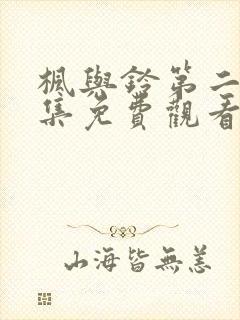 楓與鈴第二
集免費觀看
山海皆無恙